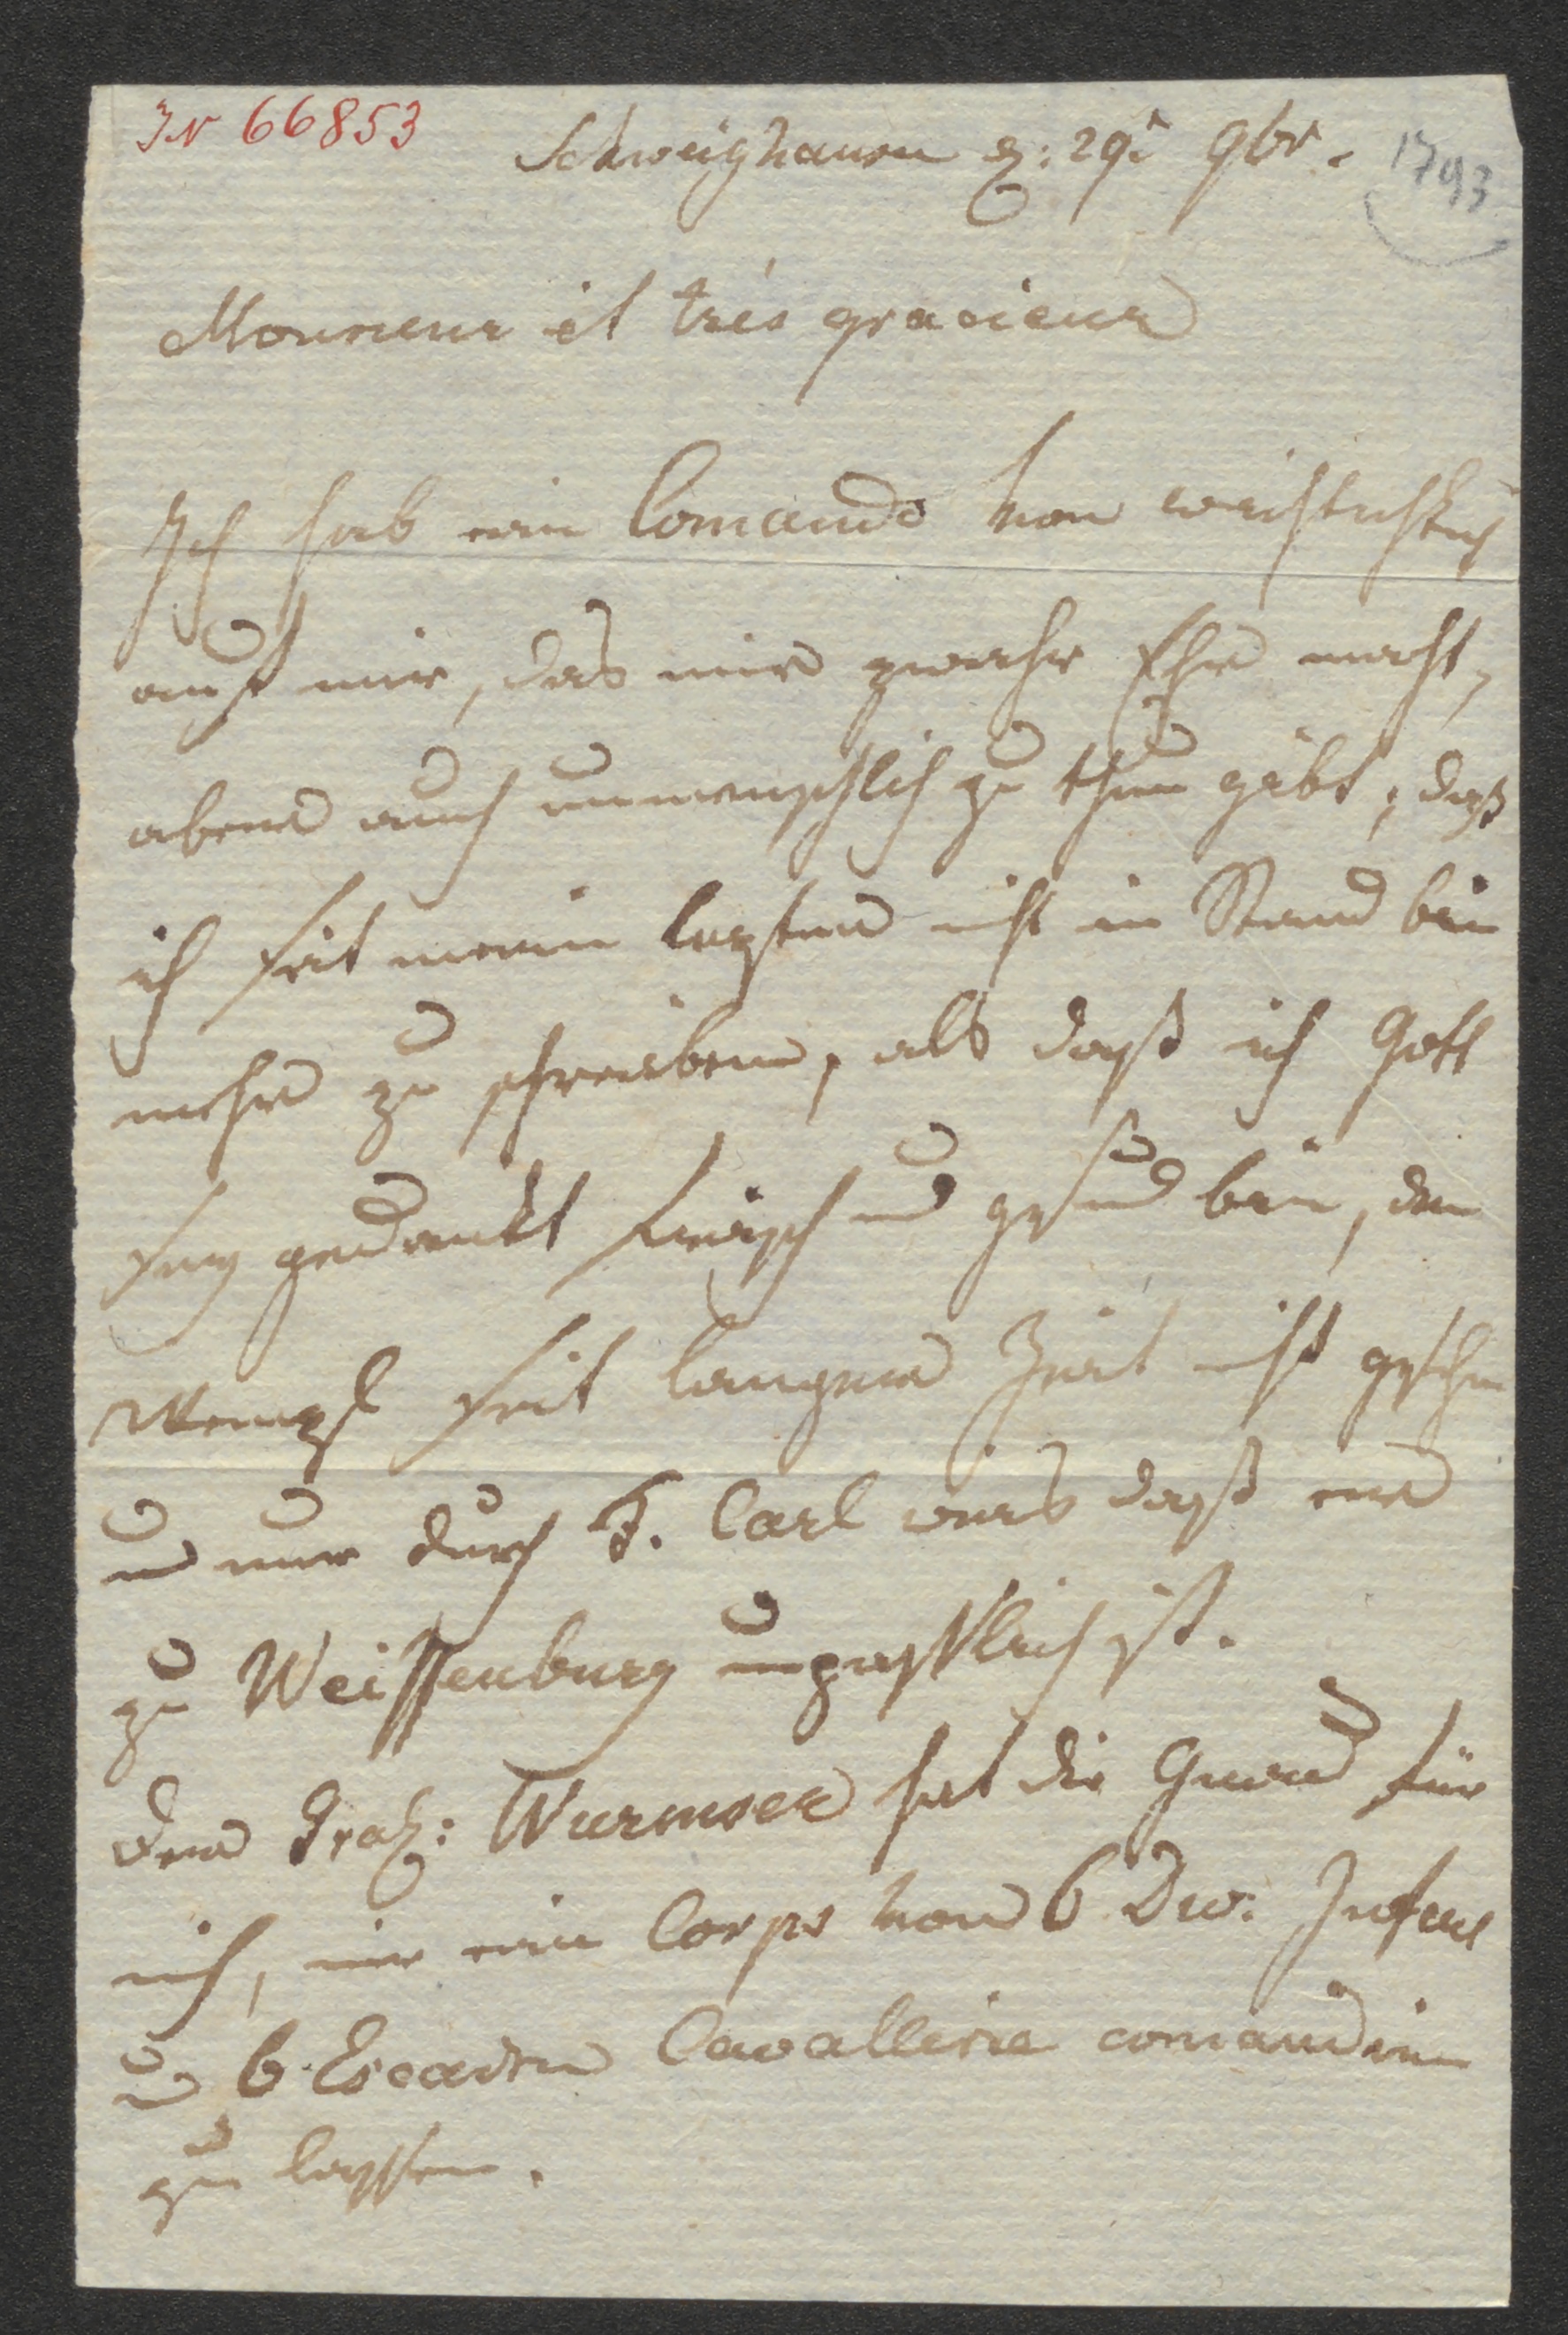 IN 66853
Schweighausen d: 29t 9br.
1793
Monsieur et trés gracieux
Ich hab ein Comando von
auf mir, das mir zwahr Ehre macht,
aber auch unmenschlich zu thun gibt; daß
ich seit mein lezten nicht in Stand bin
mehr zu schreiben, als daß ich Gott
sey gedankt frisch und gesund bin, den
seit langer Zeit nicht gesehen
und nur durch F. Carl weis daß er
zu Weissenburg unpasslich ist.
Der Graf: Wurmser hat die Gnad für
mich, mir ein Corps von 6 Div: Infant
und 6 Escadron Cavallerie comandiren
zu lassen.